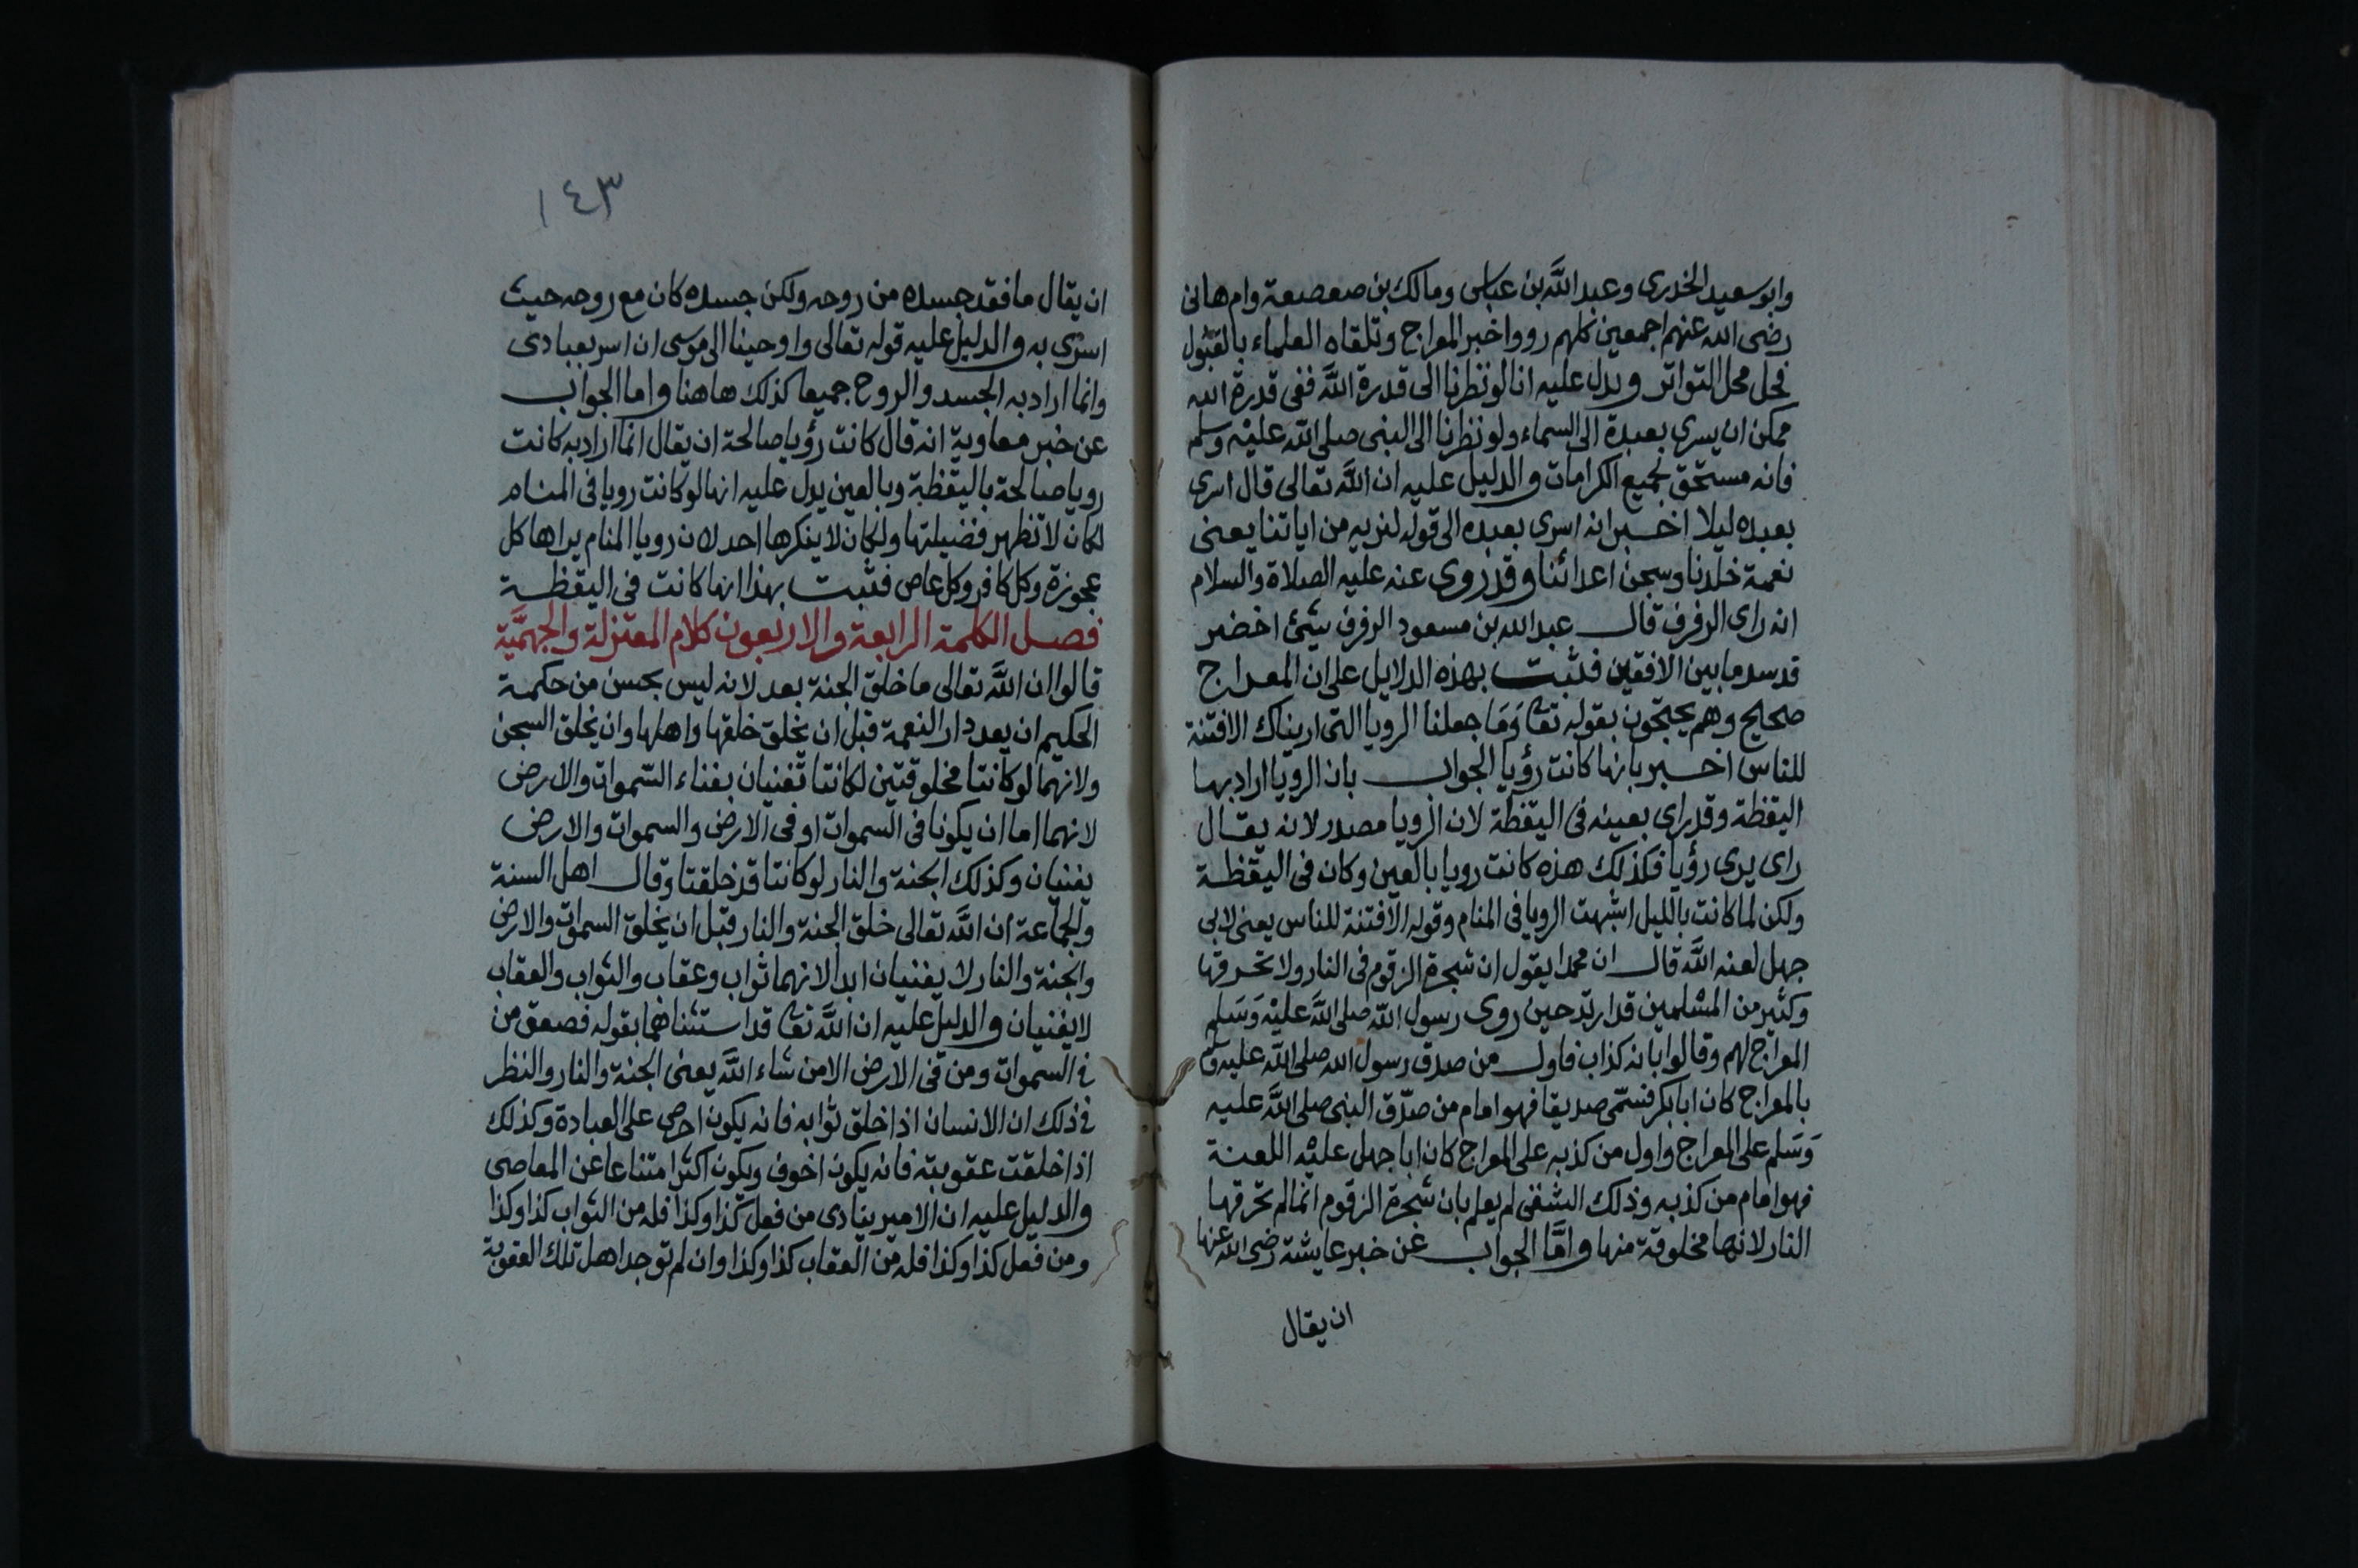 وابو سعيد الخدرى وعبد اللَّه بن عباس ومالك بن صعصعة وام هانى
رضى الله عنهم اجمعين كلهم رووا خبر المعراج وتلقاه العلماء بالقبول
فحل محل التواتر ويدل عليه انا لو نظرنا الى قدرة اللَّه ففى قدرة الله
ممكن ان يسرى بعبدة الى السماء ولو نظرنا الى النبى صلى اللَّه عليه وسلم
فانه مستحق لجميع الكرامات والدليل عليه ان اللَّه تعالى قال اسرى
بعبده ليلا اخبر انه اسرى بعبده الى قوله لنريه من اياتنا يعنى
نعمة خلدنا وسجن اعدائنا وقد روى عنه عليه الصلاة والسلام
انه راى الرفرف قال عبد الله بن مسعود الرفرف شئ اخضر
قد سد ما بين الافقين فثبت بهذه الدلايل على ان المعراج
صحيح وهم يحتجون بقوله تعا وَمَا جعلنا الرويا التى اريناك الا فتنة
للناس اخبر بانها كانت رؤيا الجواب بان الرويا اراد بها
اليقظة وقد راى بعينه فى اليقظة لان الرويا مصدر لانه يقال
راى يرى رؤيا فكذلك هذه كانت رويا بالعين وكان فى اليقظة
ولكن لما كانت بالليل اشبهت الرويا فى المنام وقوله الا فتنة للناس يعنى لابى
جهل لعنه اللَّه قال ان محمدا يقول ان شجرة الزقوم فى النار ولا تحرقها
وكثير من المسلمين قد ارتد حين روى رسول اللّه صلى اللَّه عليْه وَسَلم
المعراج لهم وقالوا بانه كذاب فاول من صدق رسول الله صلى اللَّه عليه وسلم
بالمعراج كان ابا بكر فسمّى صديقا فهو امام من صدّق النبى صلى اللَّه عليه
وَسَلم على المعراج واول من كذبه على المعراج كان ابا جهل عليْه اللعنة
فهو امام من كذبه وذلك الشقى لم يعلم بان شجرة الزقوم انما لم تحرقها
النار لانها مخلوقة منها وامَّا الجواب عن خبر عايشة رضى الله عنها
ان يقال
١٤٣
ان يقال ما فقد جسده من روحه ولكن جسده كان مع روحه حيث
اسرى به والدليل عليه قوله تعالى واوحينا الى موسى ان اسر بعبادى
وانما اراد به الجسد والروح جميعا كذلك هاهنا واما الجواب
عن خبر معاوية انه قال كانت رؤيا صالحة ان يقال انما اراد به كانت
رويا صالحة باليقظة وبالعين يدل عليه انها لو كانت رويا فى المنام
لكان لا تظهر فضيلتها ولكان لا ينكرها احد لان رويا المنام يراها كل
عجوزة وكل كافر وكل عاص فثبت بهذا انها كانت فى اليقظة
فصل الكلمة الرابعة والاربعون كلام المعتزلة والجهمَّية
قالوا ان اللَّه تعالى ما خلق الجنة بعد لانه ليس بحسن من حكمة
الحكيم ان يعد دار النعمة قبل ان يخلق خلقها واهلها وان يخلق السجن
ولانهما لو كانتا مخلوقتين لكانتا تفنيان بفناء السّموات والارض
لانهما اما ان يكونا فى السموات او فى الارض والسموات والارض
يفنيان وكذلك الجنة والنار لو كانتا قد خلقتا وقال اهل السنة
والجماعة ان اللَّه تعالى خلق الجنة والنار قبل ان يخلق السموات والارض
والجنة والنار لا يفنيان ابدا لانهما ثواب وعقاب والثواب والعقاب
لا يفنيان والدليل عليه ان اللَّه تعا قد استثناهما بقوله فصعق من
فى السموات ومن فى الارض الا من شاء اللَّه يعنى الجنة والنار والنظر
فى ذلك ان الانسان اذا خلق ثوابه فانه يكون احرص على العبادة وكذلك
اذا خلقت عقوبته فانه يكون اخوف ويكون اكثر امتناعا عن المعاصى
والدليل عليه ان الامير ينادى من فعل كذا وكذا فله من الثواب كذا وكذا
ومن فعل كذا وكذا فله من العقاب كذا وكذا وان لم توجد اهل تلك العقوبة